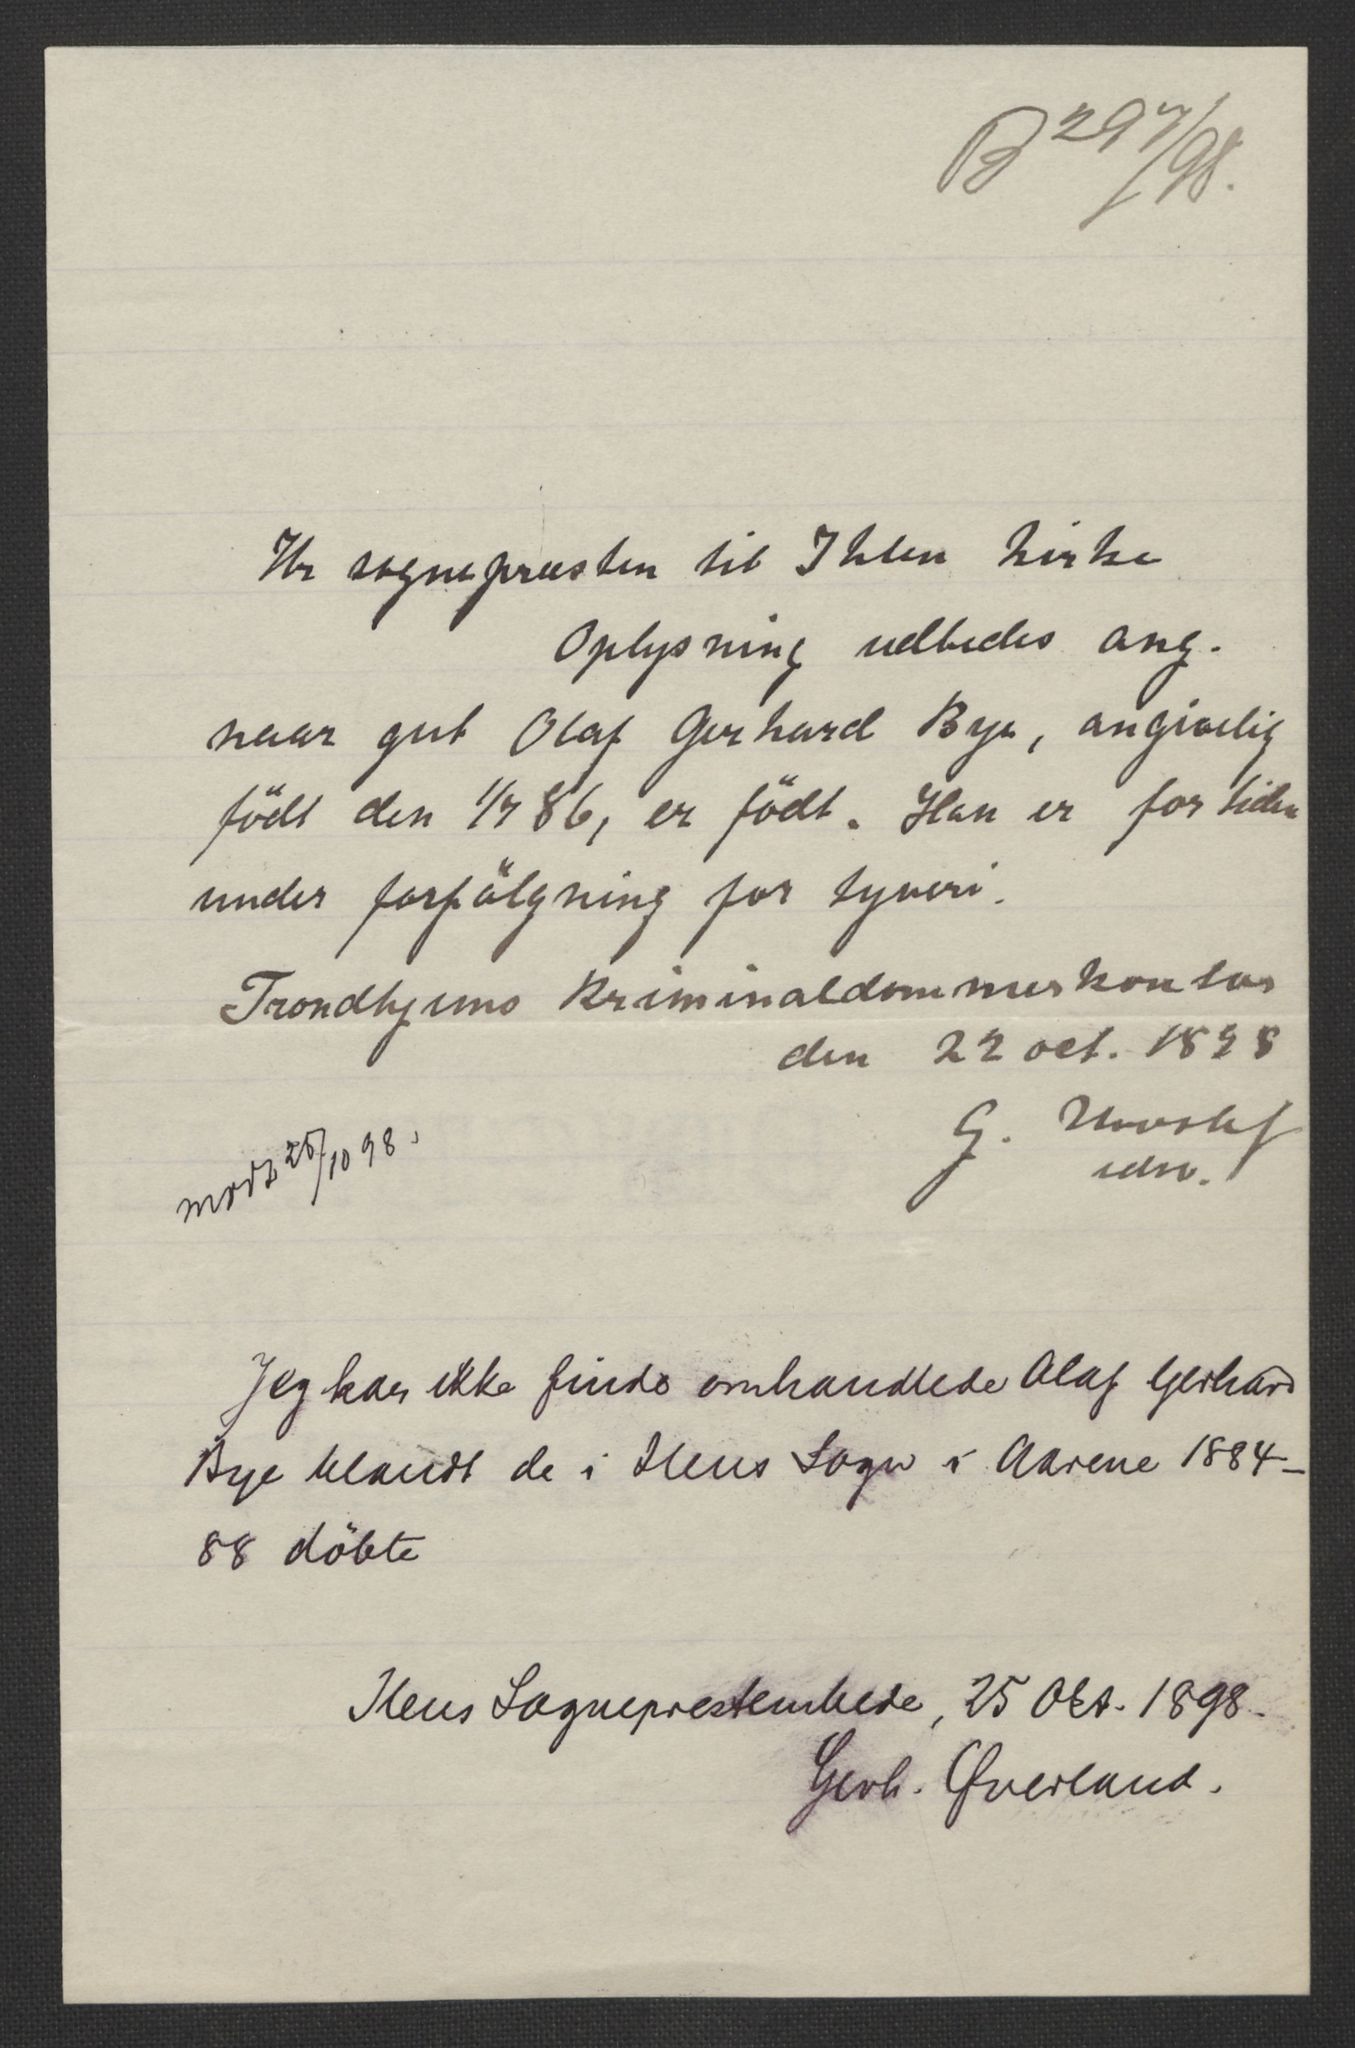 B 297/98.
Hr sognepræsten til Ihlen kirke
Oplysning udbedes ang.
naar gut Olaf Gerhard Bye, angivelig
födt den 1/7 86, er födt. Han er for tiden
under forfölgning for tyveri.
Trondhjems Kriminaldommerkontor
den 22 oct. 1898
G.
modt 25/10 98.
Jeg kan ikke finde omhandlede Olaf Gerhard
Bye blandt de i Ilens Sogn i Aarene 1884–
88 döbte
Ilens Sogneprestembede, 25 Okt. 1898.
Gerh. Øverland.